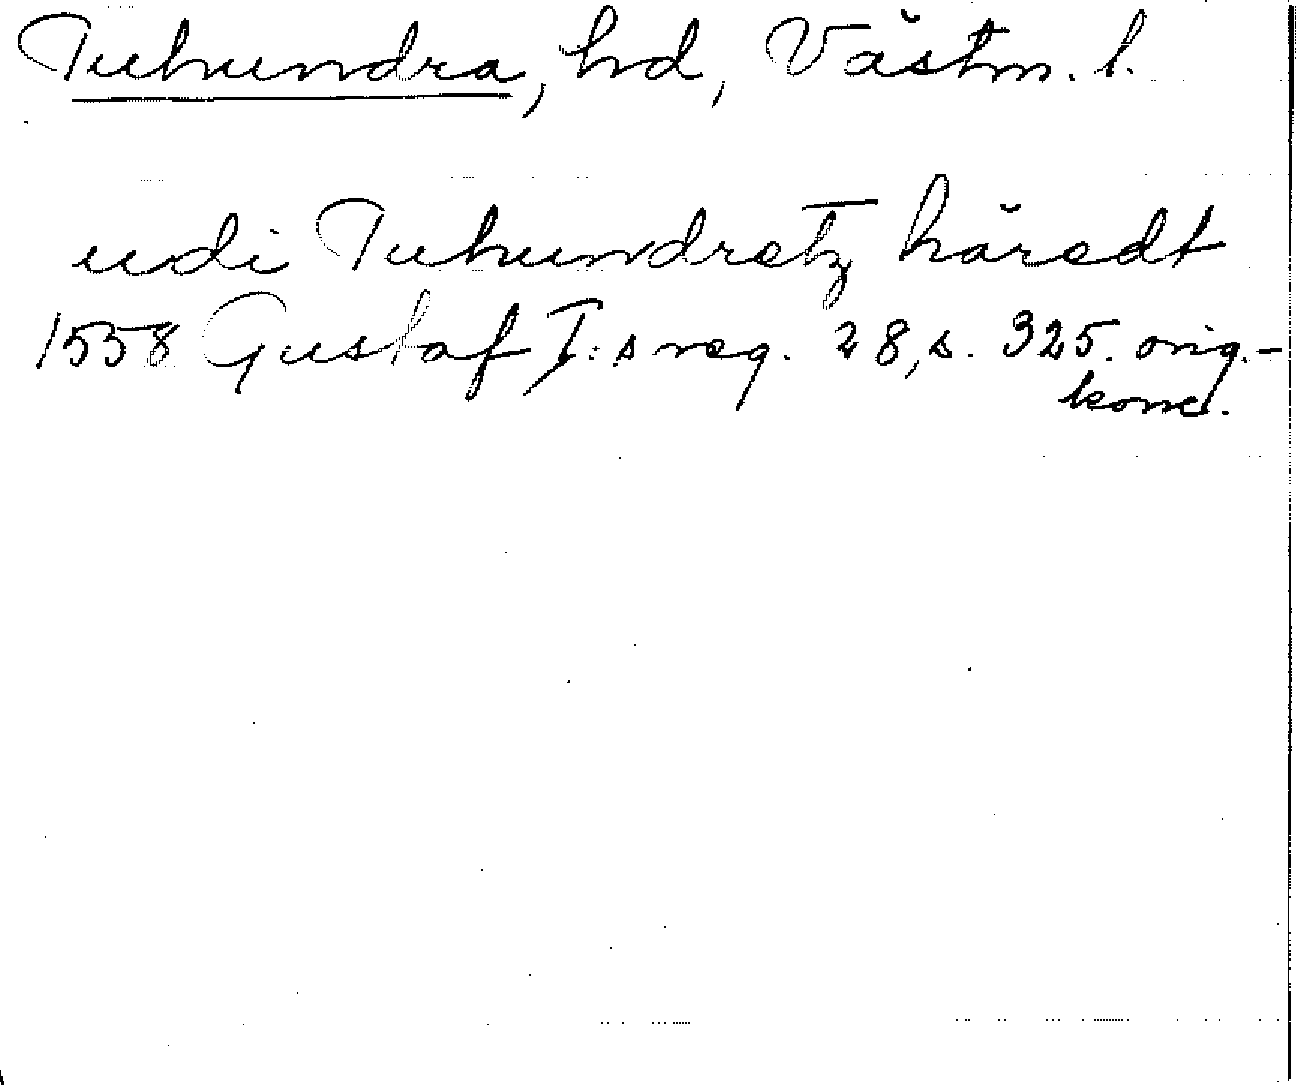 Tuhundra, hd, Västm. l.
udi Tuhundretz häredt
1558 Gustaf I:s reg. 28, s. 325. orig.-
konc.